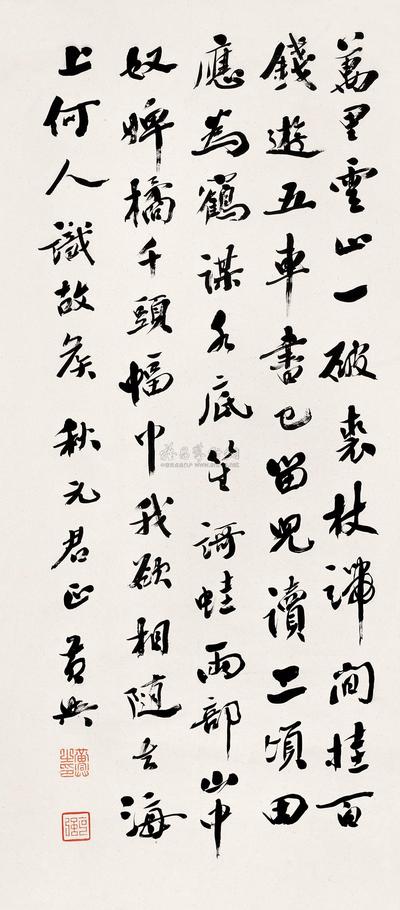 萬里雲山一破裘杖端間挂百
錢遊五車書已留兒讀二頃田
應為鶴謀水底笙謌蛙兩部山中
奴婢橘千頭幅巾我欲相隨去海
上何人識故矦 秋元君正 黃興